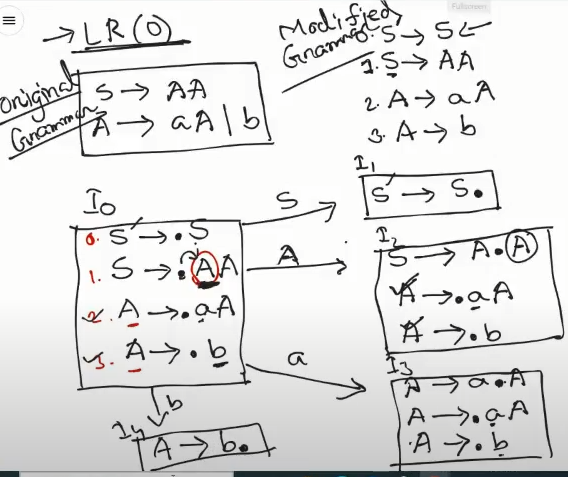 Fullscreen
→ LR(0)
original Grammar
S → AA
A → aA | b
Modified Grammar
0. S' → S
1. S → AA
2. A → aA
3. A → b
I₀
0. S' → .S
1. S → .AA
2. A → .aA
3. A → .b
S
I₁
S' → S.
A
I₂
S → A.A
A → .aA
A → .b
a
I₃
A → a.A
A → .aA
A → .b
b
I₄
A → b.